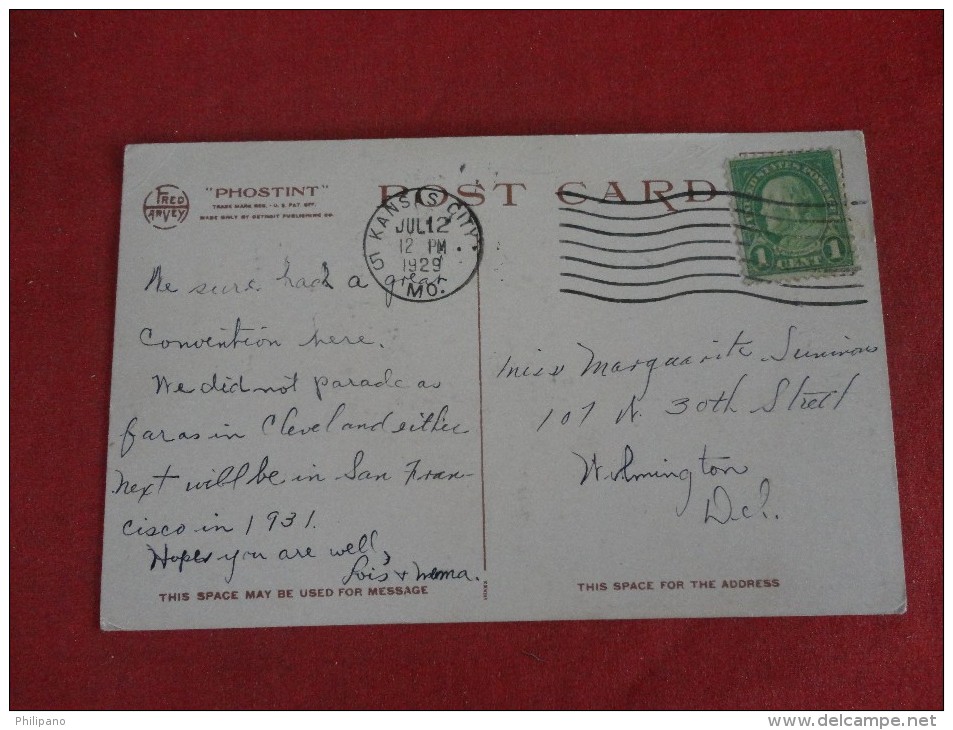 FRED HARVEY
"PHOSTINT"
TRADE MARK REG. - U.S. PAT. OFF.
MADE ONLY BY DETROIT PUBLISHING CO.
POST CARD
KANSAS CITY
5
JUL 12
12 PM
1929
MO.
UNITED STATES POSTAGE
1 CENT 1
We sure had a great
Convention here.
We did not parade as
far as in Cleveland either
next will be in San Fran-
cisco in 1931.
Hope you are well,
Lois +
THIS SPACE MAY BE USED FOR MESSAGE
Miss Marguarite
107 N. 30th Street
Wilmington
Del.
THIS SPACE FOR THE ADDRESS
Philipano
www.delcampe.net